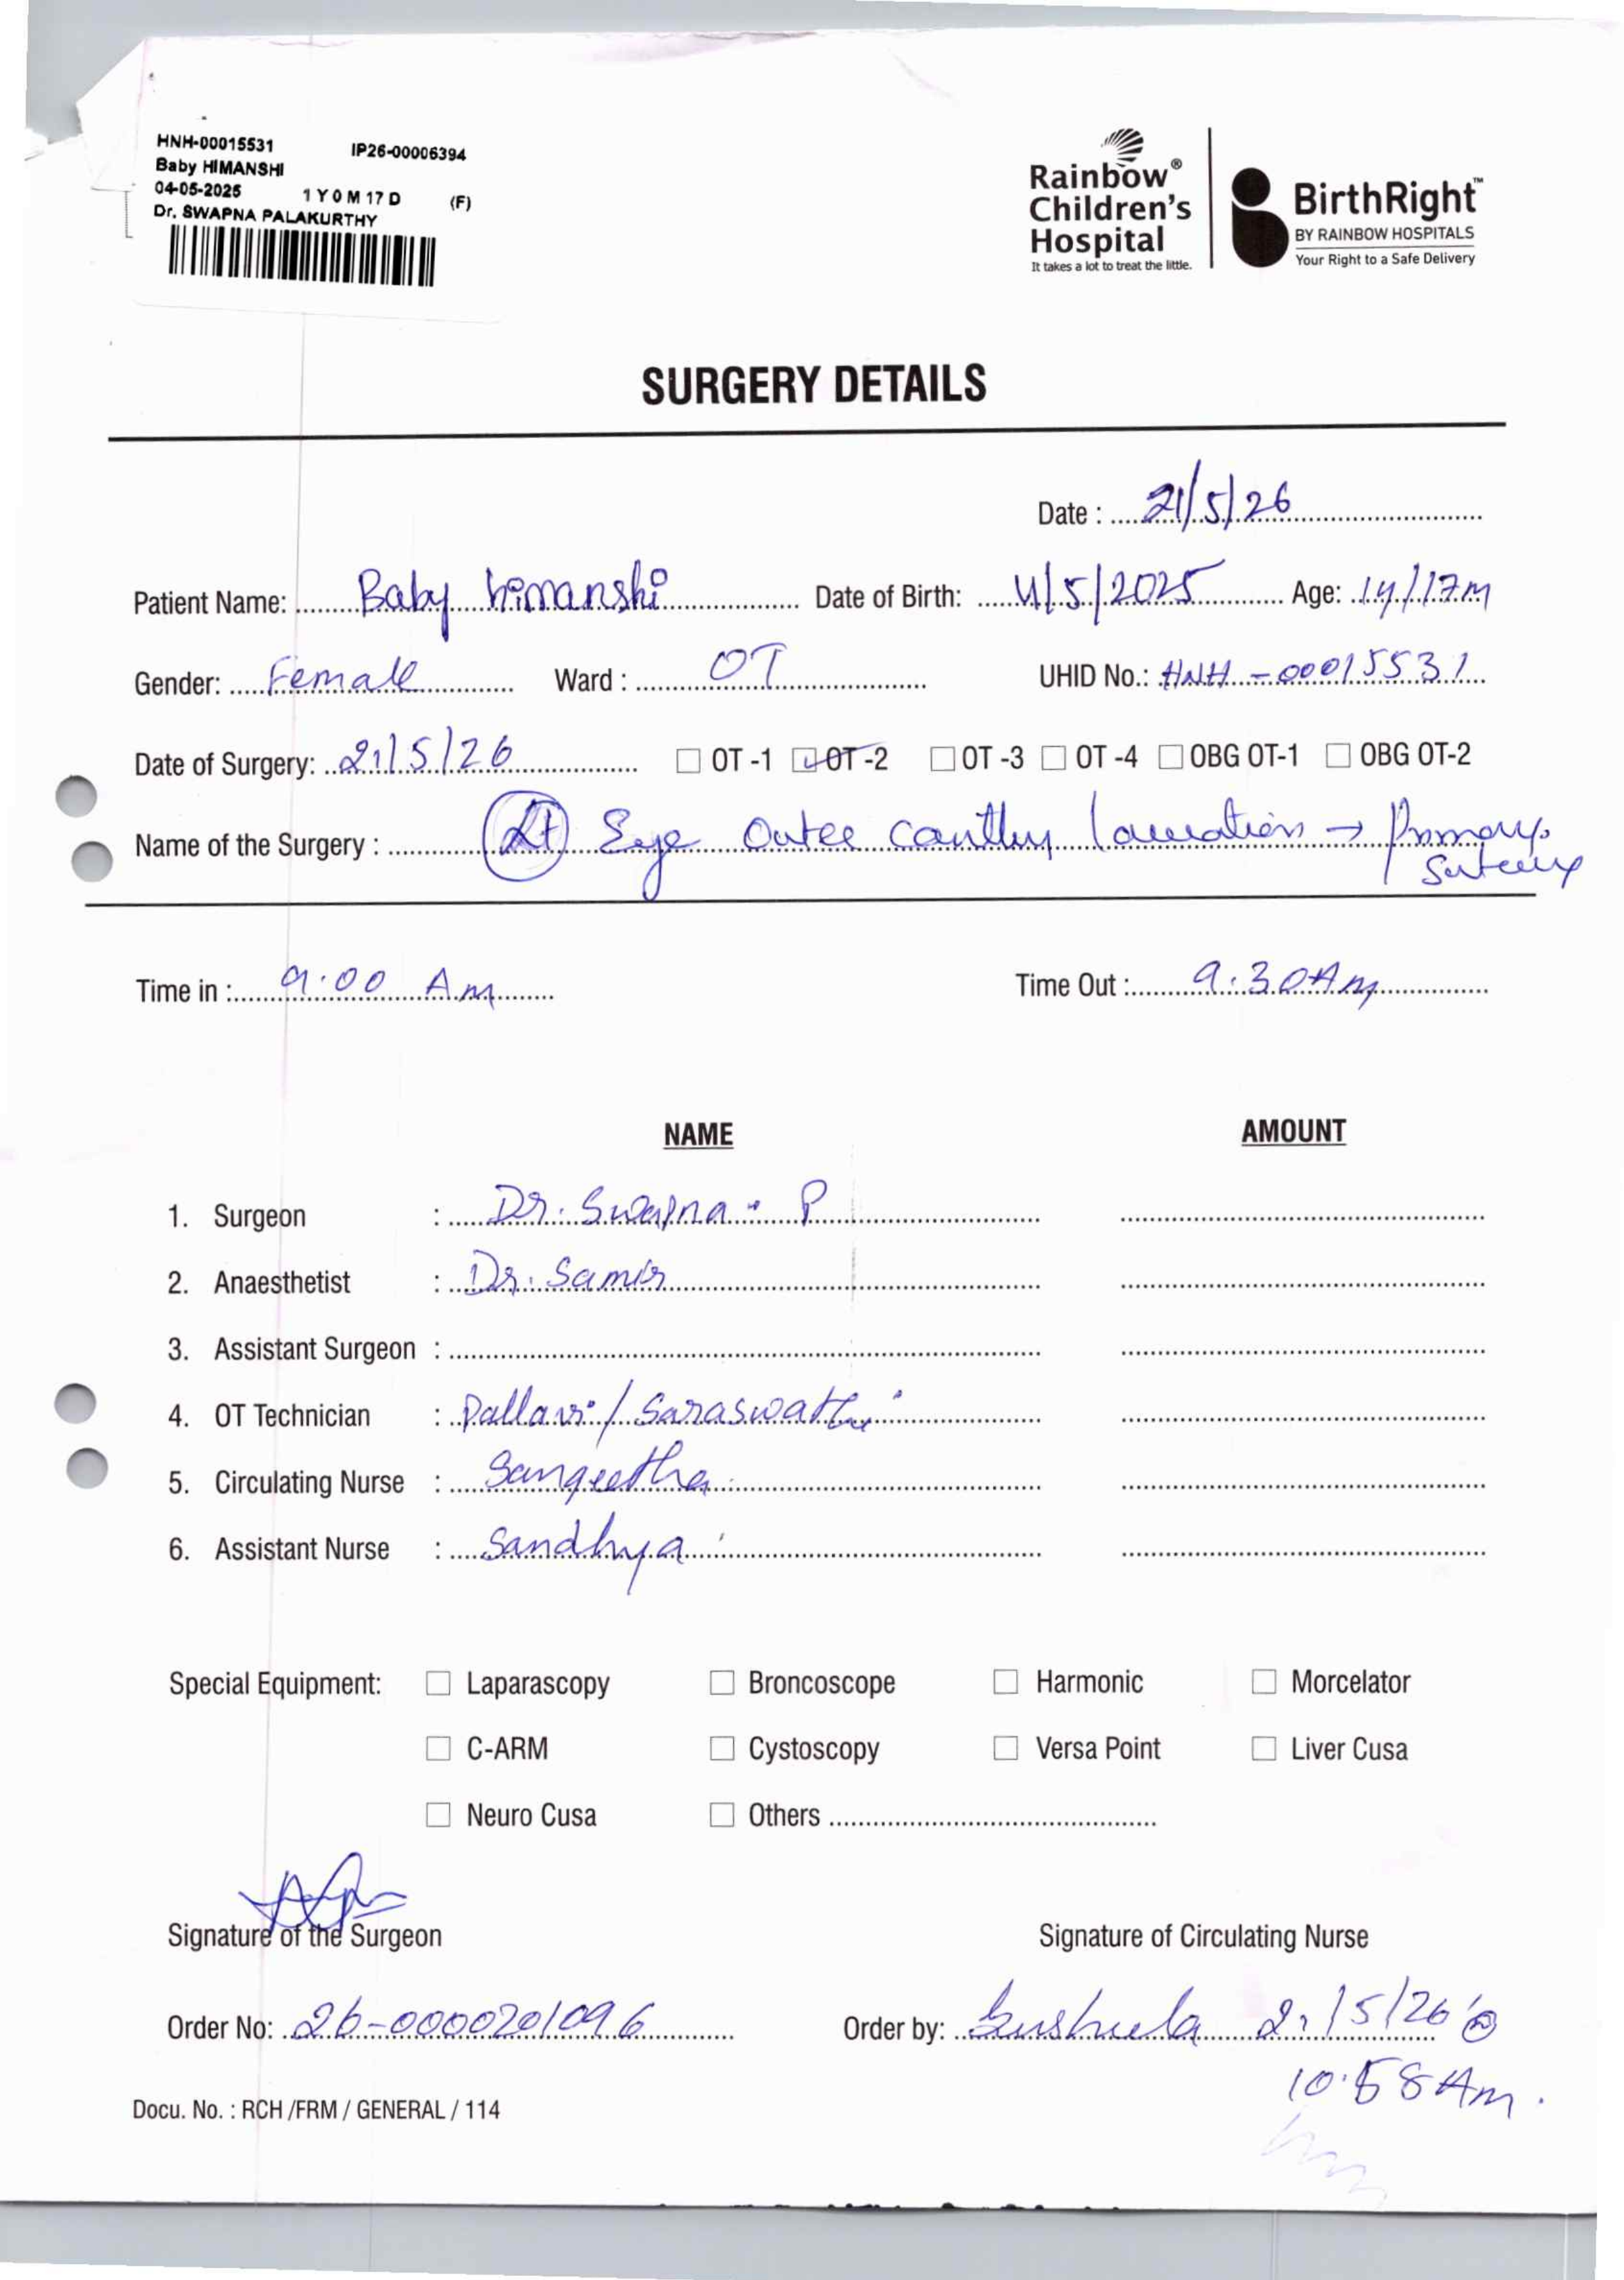 HNH-00015531 IP26-00006394
Baby HIMANSHI
04-05-2025 1 Y 0 M 17 D (F)
Dr. SWAPNA PALAKURTHY
Rainbow® Children's Hospital
It takes a lot to treat the little.
BirthRight™
BY RAINBOW HOSPITALS
Your Right to a Safe Delivery
SURGERY DETAILS
Date : 21/5/26
Patient Name: Baby himanshi Date of Birth: 4/5/2025 Age: 1y/17m
Gender: Female Ward : OT UHID No.: HNH-00015531
Date of Surgery: 21/5/26 ☐ OT -1 ☑ OT -2 ☐ OT -3 ☐ OT -4 ☐ OBG OT-1 ☐ OBG OT-2
Name of the Surgery : Lt Eye Outer canthus laceration → Primary
Time in : 9.00 Am Time Out : 9.30Am
NAME AMOUNT
1. Surgeon : Dr. Swapna. P
2. Anaesthetist : Dr. Samir
3. Assistant Surgeon :
4. OT Technician : Pallavi / Saraswathi
5. Circulating Nurse : Sangeetha
6. Assistant Nurse : Sandhya
Special Equipment: ☐ Laparascopy ☐ Broncoscope ☐ Harmonic ☐ Morcelator
☐ C-ARM ☐ Cystoscopy ☐ Versa Point ☐ Liver Cusa
☐ Neuro Cusa ☐ Others
Signature of the Surgeon Signature of Circulating Nurse
Order No: 26-0000201096 Order by: 21/5/26 @
10:58 Am.
Docu. No. : RCH /FRM / GENERAL / 114